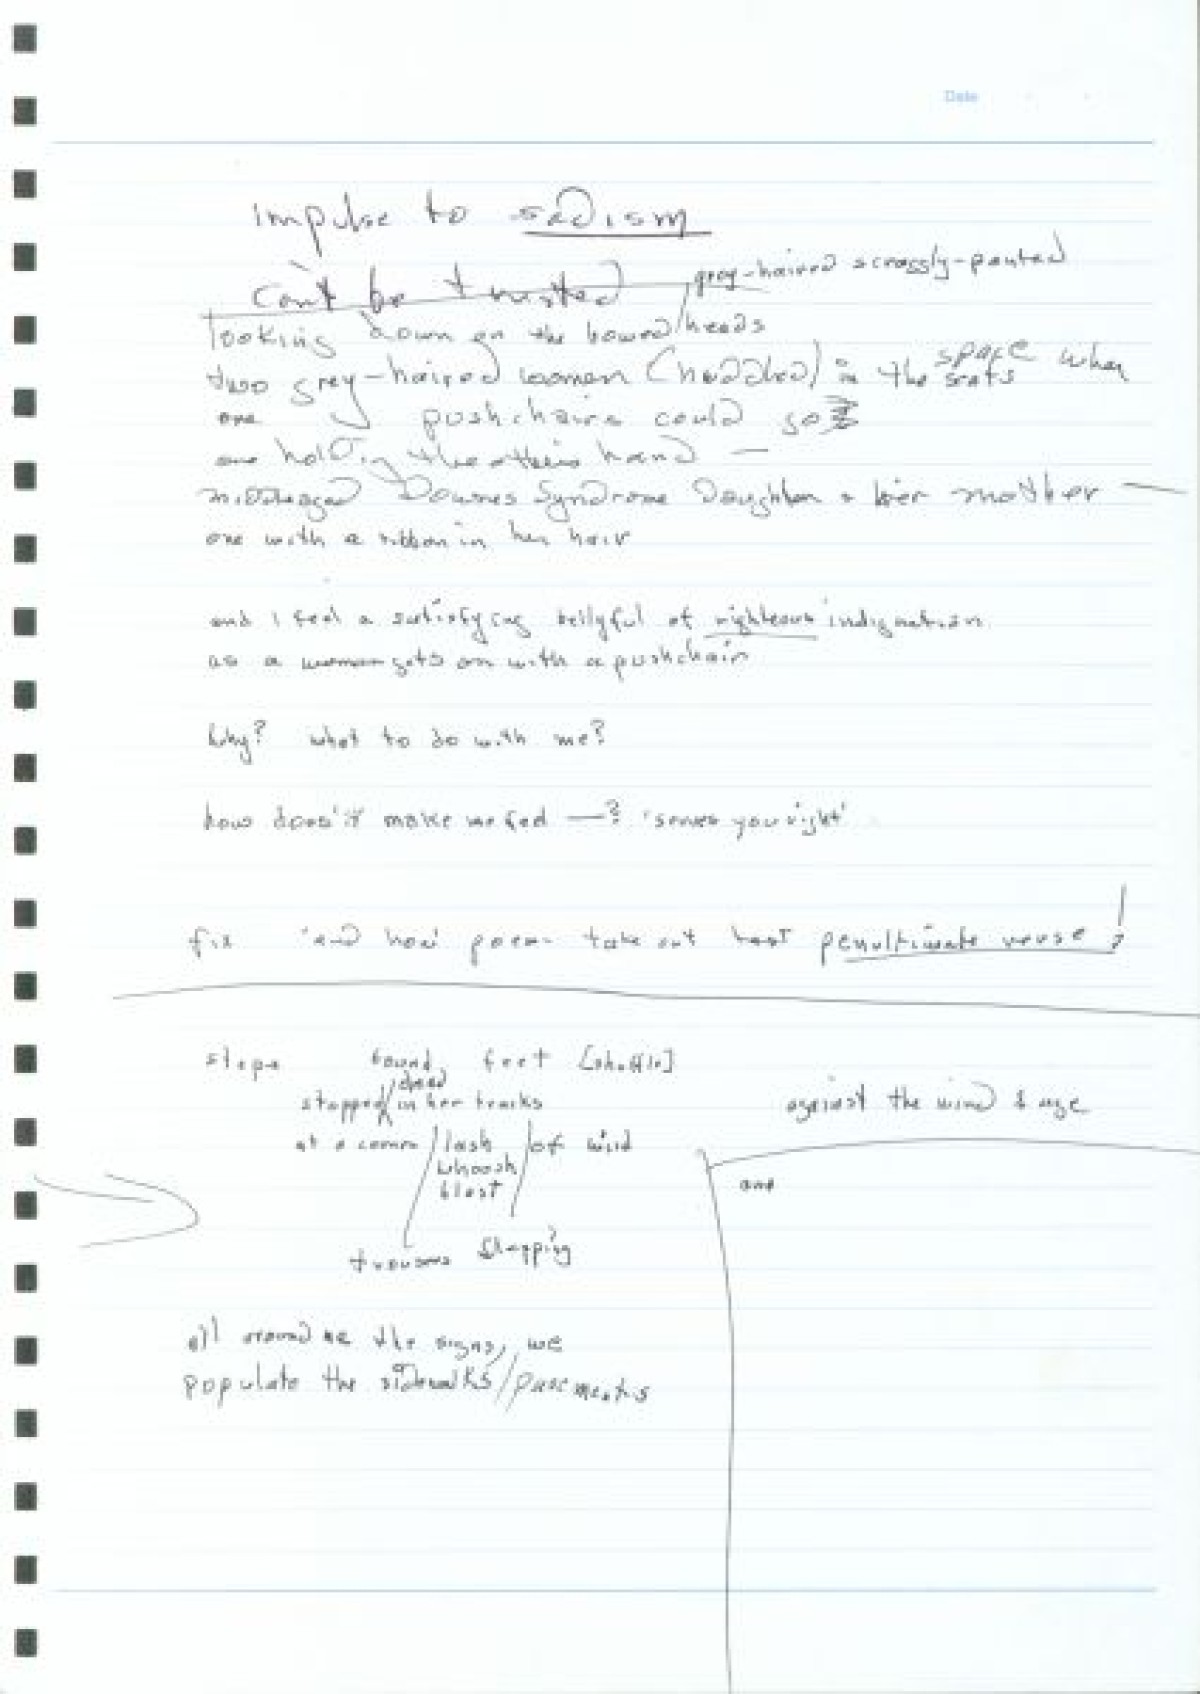 Date
impulse to sadism
can't be trusted
grey-haired
looking down on the bowed/heads
two grey-haired women (huddled) in the space when
seats
one pushchairs could go
one holding the other's hand —
middleaged Downes Syndrome Daughter + her mother —
one with a ribbon in her hair
and i feel a satisfying bellyful of righteous indignation
as a woman gets on with a pushchair
Why? what to do with me?
how does it make me feel —? 'serves you right'
fix 'and how' poem take out last penultimate verse!
steps sound, feet [shuffle]
dead
stopped/in her tracks
against the wind & age
at a corner/lash/of wind
whoosh
blast
one
trousers flapping
all around me the signs, we
populate the sidewalks/pavements